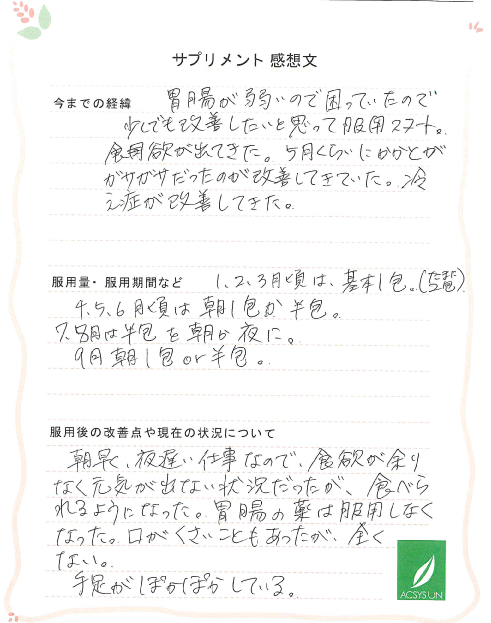 サプリメント 感想文
今までの経緯 胃腸が弱いので困っていたので
少しでも改善したいと思って服用スタート。
食欲が出てきた。5月くらいにかかとが
ガサガサだったのが改善してきていた。冷
え症が改善してきた。
服用量・服用期間など 1、2、3月頃は、基本1包。(たまに2包)
4、5、6月頃は朝1包か半包。
7、8月は半包を朝か夜に。
9月朝1包or半包。
服用後の改善点や現在の状況について
朝早く、夜遅い仕事なので、食欲が余り
なく元気が出ない状況だったが、食べら
れるようになった。胃腸の薬は服用しなく
なった。口がくさいこともあったが、全く
ない。
手足がぽかぽかしている。
ACSYSUN